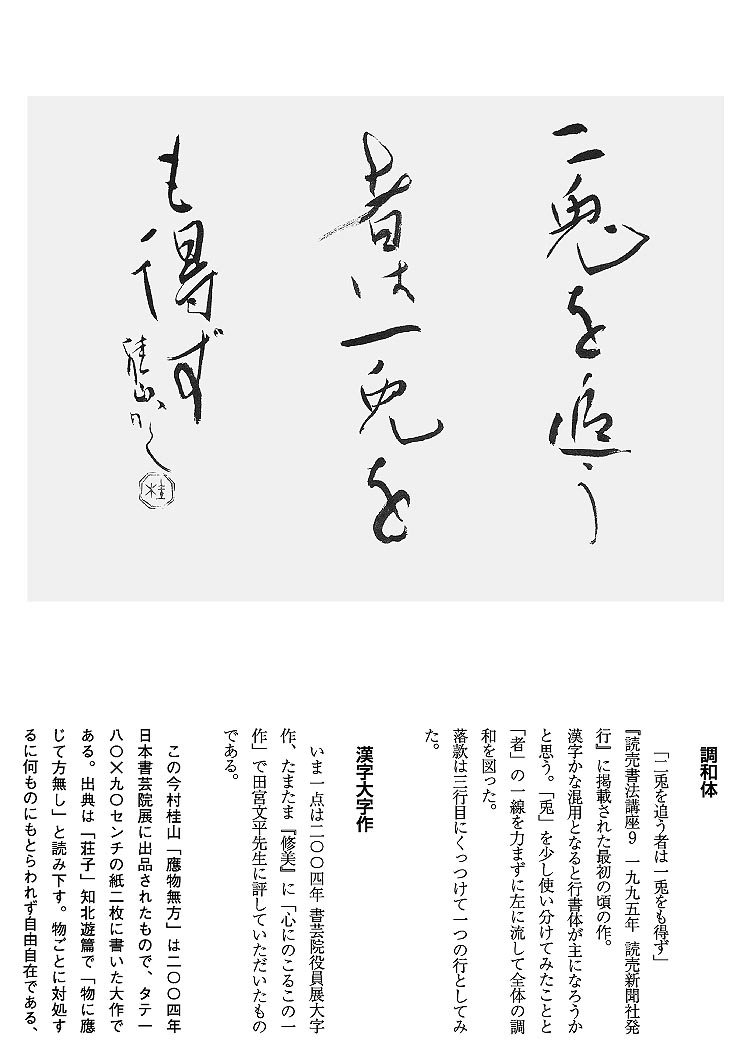 二兎を追う
者は一兎を
も得ず
桂山かく
桂
調和体
「二兎を追う者は一兎をも得ず」
『読売書法講座9　一九九五年　読売新聞社発
行』に掲載された最初の頃の作。
漢字かな混用となると行書体が主になろうか
と思う。「兎」を少し使い分けてみたことと
「者」の一線を力まずに左に流して全体の調
和を図った。
落款は三行目にくっつけて一つの行としてみ
た。
漢字大字作
いま一点は二〇〇四年 書芸院役員展大字
作、たまたま『修美』に「心にのこるこの一
作」で田宮文平先生に評していただいたもの
である。
この今村桂山「應物無方」は二〇〇四年
日本書芸院展に出品されたもので、タテ一
八〇×九〇センチの紙二枚に書いた大作で
ある。出典は「荘子」知北遊篇で「物に應
じて方無し」と読み下す。物ごとに対処す
るに何ものにもとらわれず自由自在である、